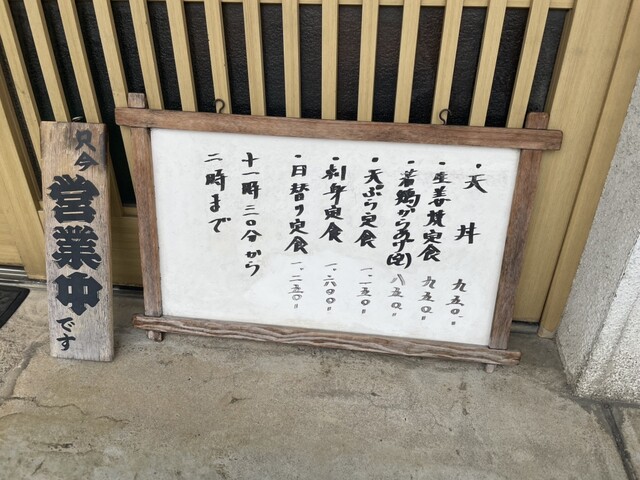 ・天丼 九五〇、
・生姜焼定食 九五〇〃
・若鶏からあげ(定) 八五〇〃
・天ぷら定食 一、二五〇〃
・刺身定食 一、六〇〇〃
・日替り定食 一、二五〇〃
十一時三〇分から
二時まで
只今
営業中
です